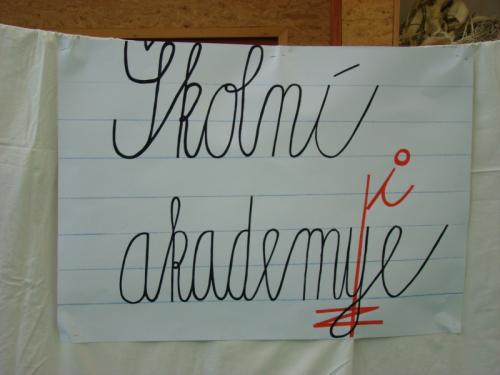 Školní
i
akademyje